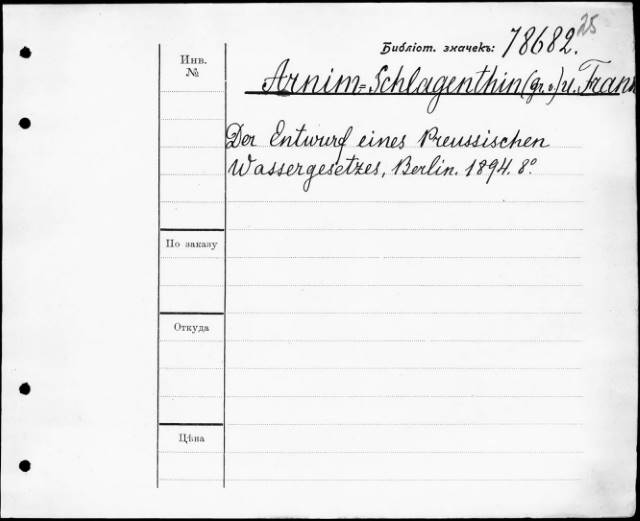 25
Библіот. значекъ: 78682.
Инв.
№
Arnim=Schlagenthin (gr. v.) u. Frank
Der Entwurf eines Preussischen
Wassergesetzes, Berlin. 1894. 8°
По заказу
Откуда
Цѣна